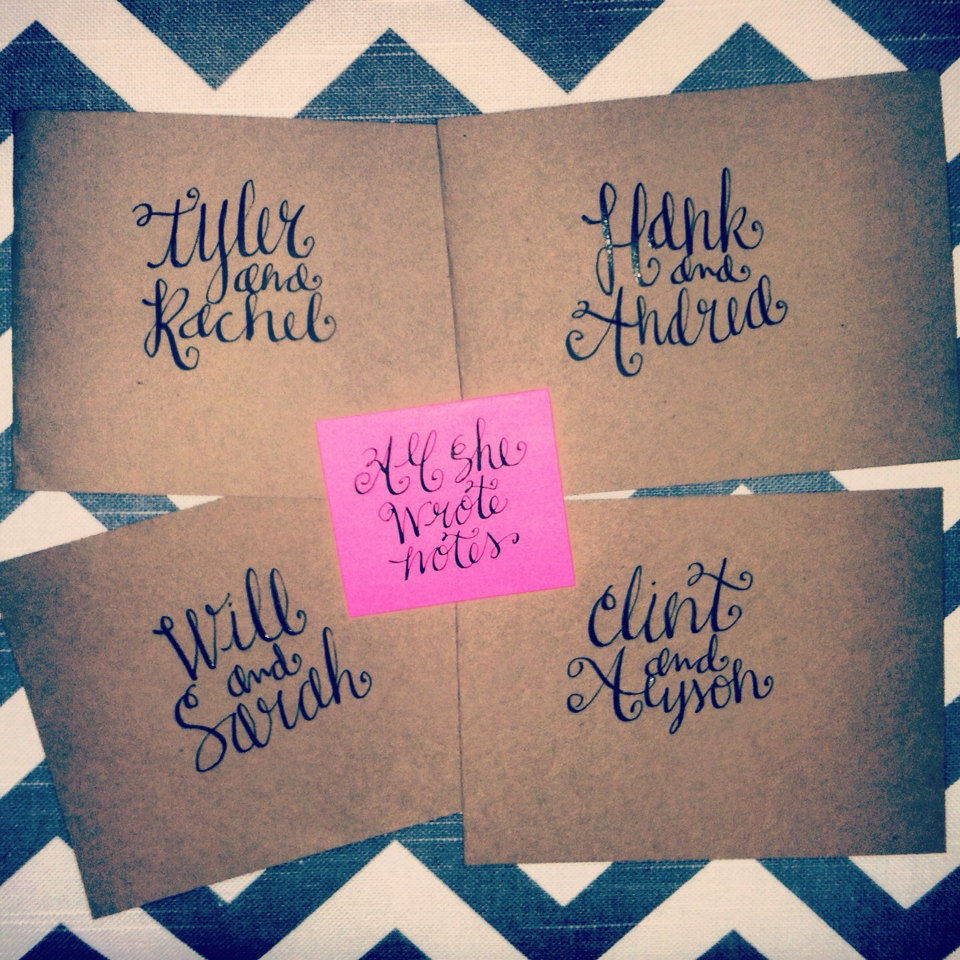 Tyler
and
Rachel
Hank
and
Andrea
All She
Wrote
notes
Will
and
Sarah
Clint
and
Alyson